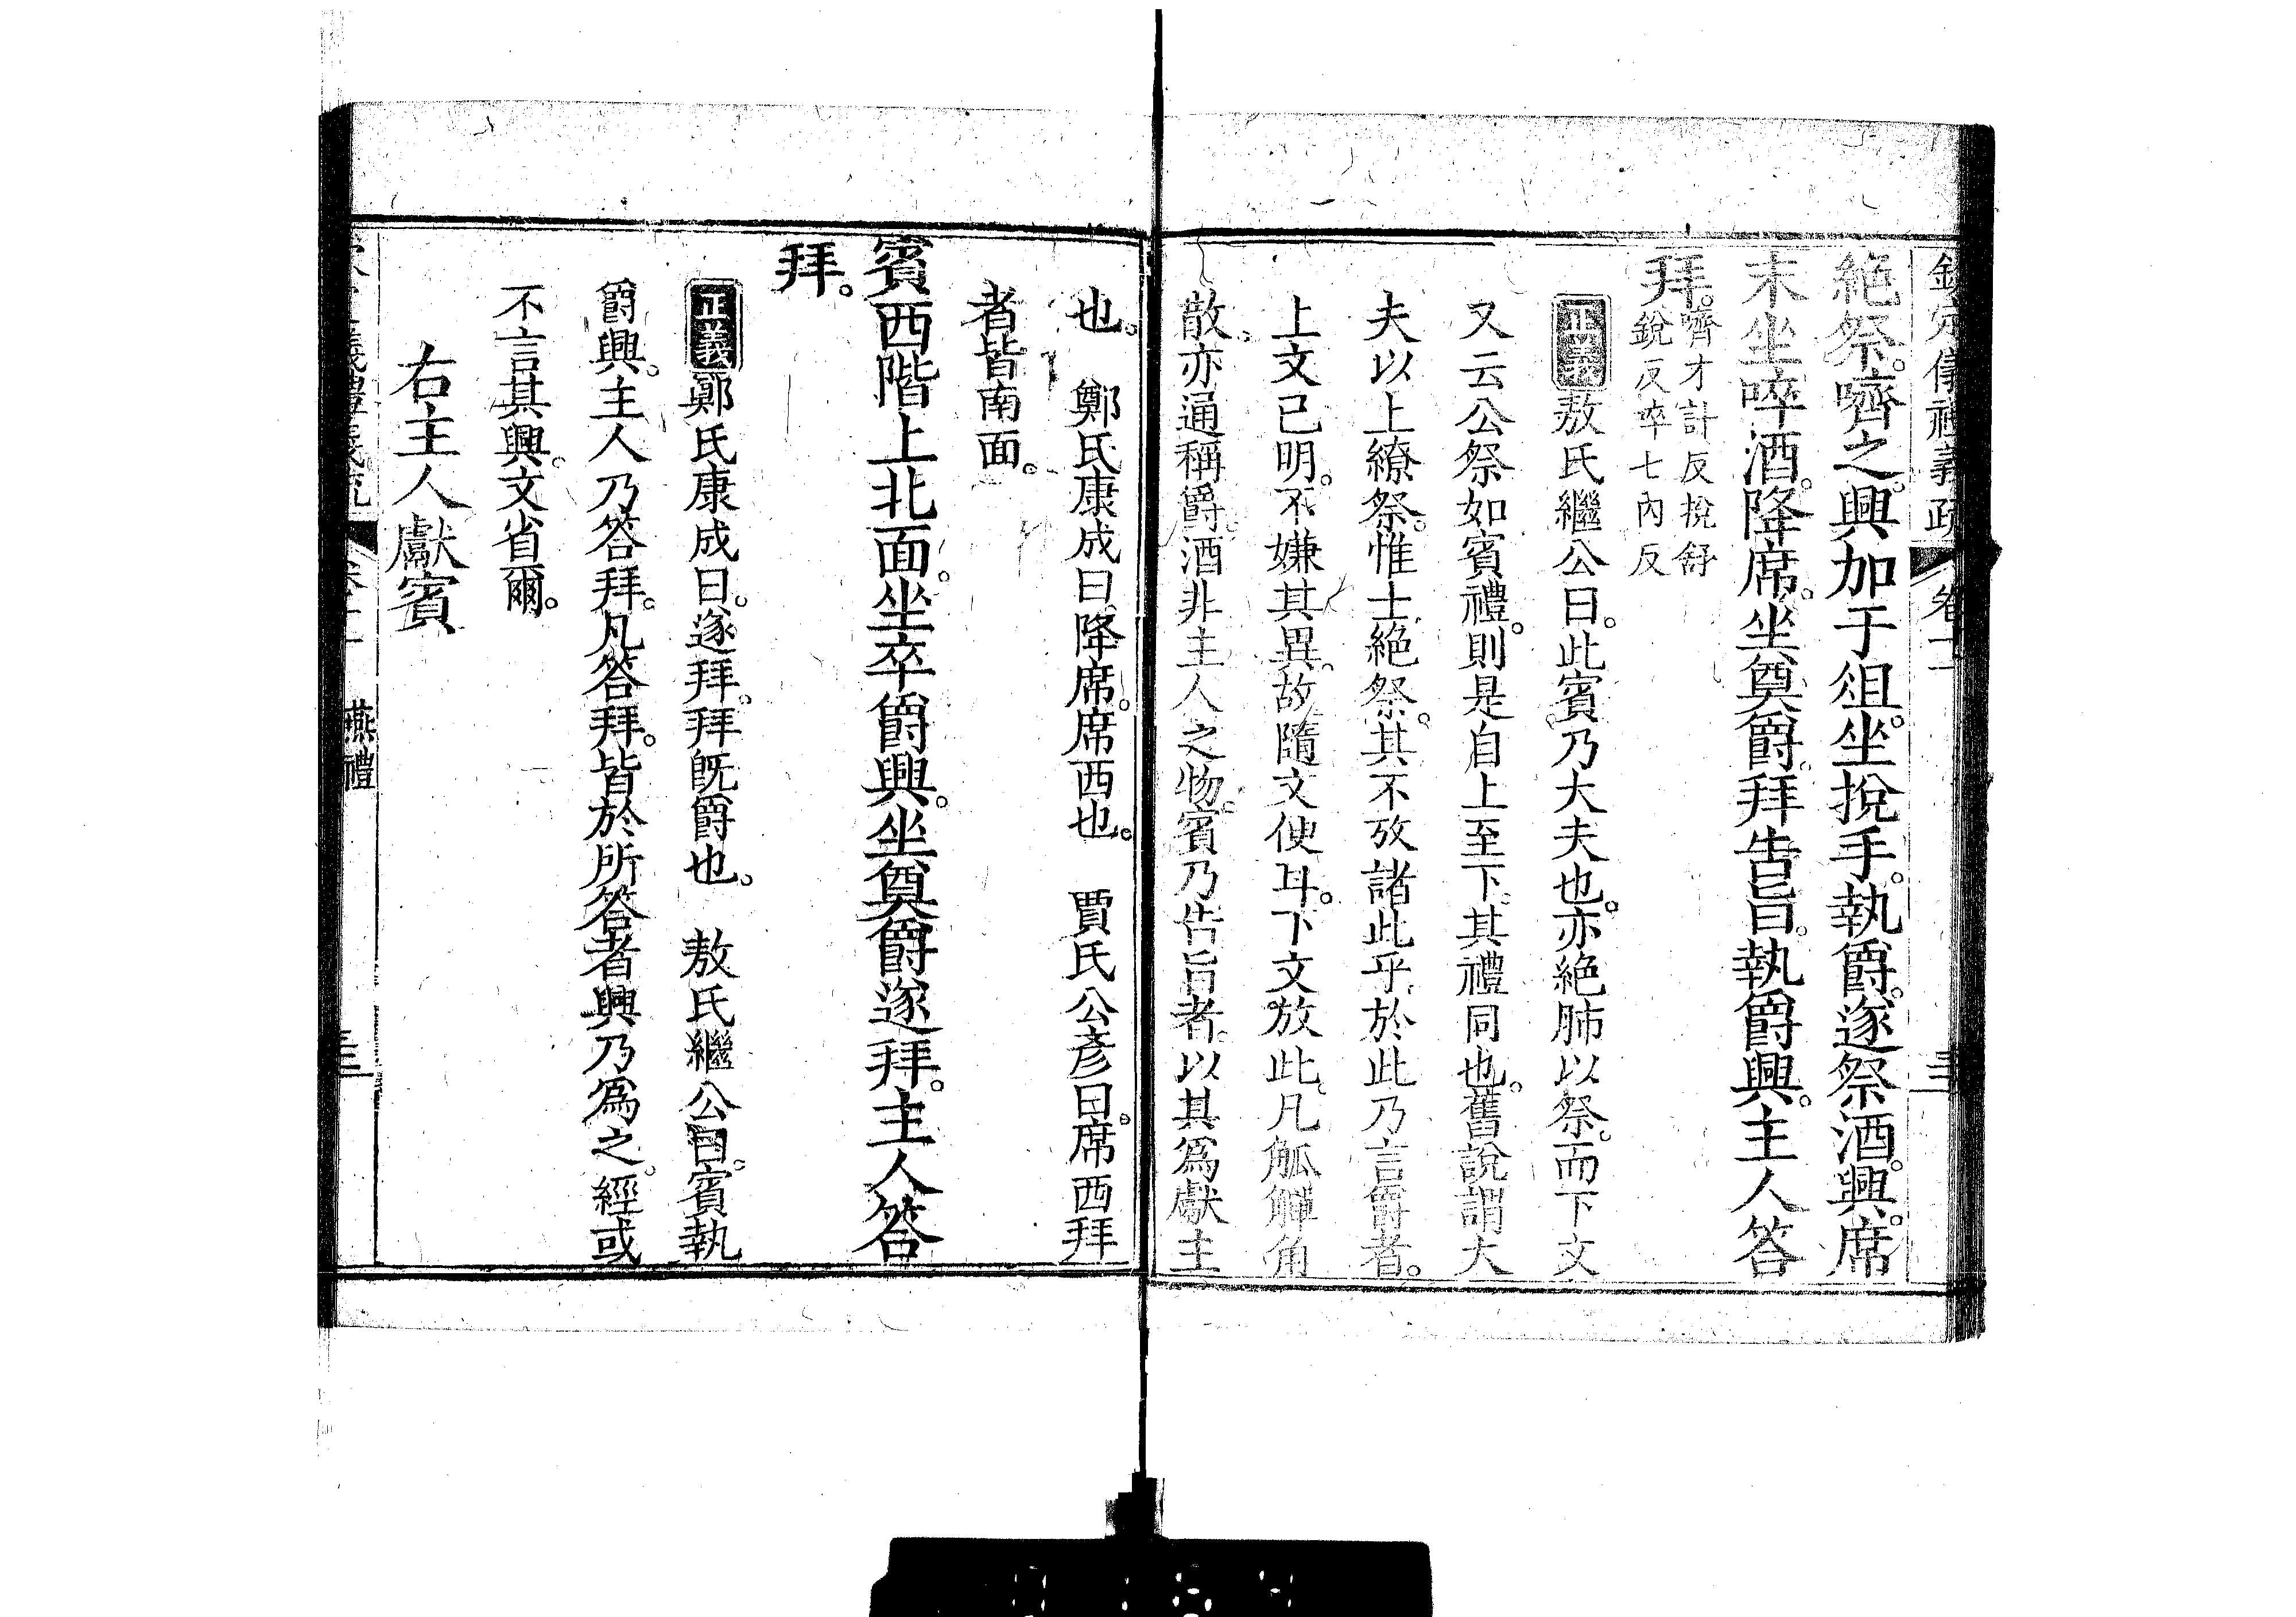 欽定儀禮義疏 卷十一
絶祭。嚌之。興加于俎。坐挩手。執爵。遂祭酒。興。席
末坐啐酒。降席。坐奠爵。拜告旨。執爵興。主人答
拜。嚌才計反挩舒銳反啐七內反
正義敖氏繼公曰。此賓乃大夫也。亦絶肺以祭。而下文
又云公祭如賓禮。則是自上至下。其禮同也。舊說謂大
夫以上繚祭。惟士絶祭。其不攷諸此乎。於此乃言爵者。
上文已明。不嫌其異。故隨文便耳。下文放此。凡觚觶角
散。亦通稱爵。酒非主人之物。賓乃告旨者。以其爲獻主
也。 鄭氏康成曰。降席。席西也。 賈氏公彥曰。席西拜
者皆南面。
賓西階上北面。坐卒爵興。坐奠爵遂拜。主人答
拜。
正義鄭氏康成曰。遂拜。拜旣爵也。 敖氏繼公曰。賓執
爵興。主人乃答拜。凡答拜。皆於所答者興乃爲之。經或
不言其興。文省爾。
右主人獻賓
燕禮